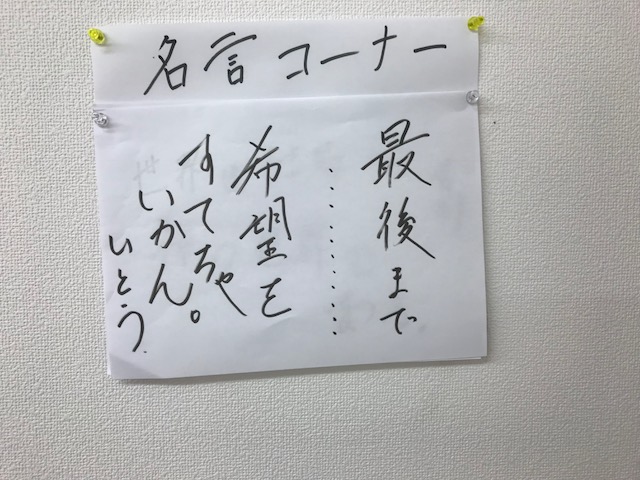 名言コーナー
最後まで
…………
希望を
すてちゃ
いかん。
いとう.